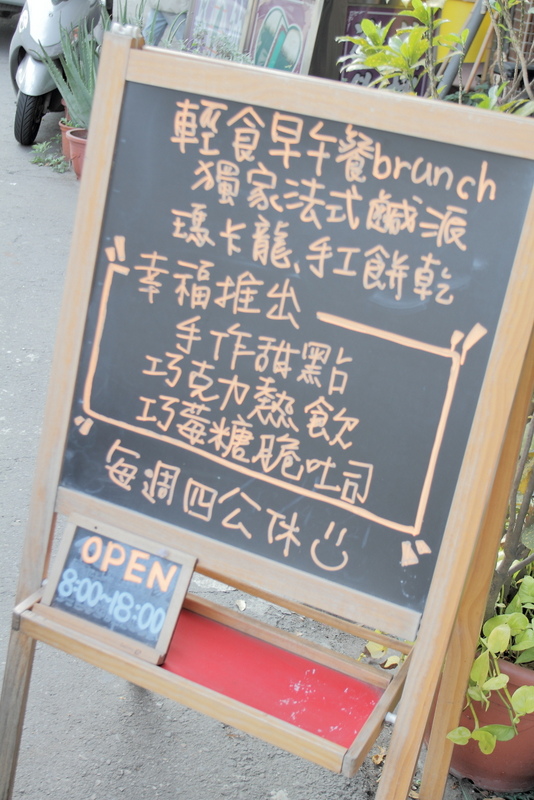 輕食早午餐brunch
獨家法式鹹派
瑪卡龍、手工餅乾
幸福推出
手作甜點
巧克力熱飲
巧莓糖脆吐司
每週四公休
OPEN
8:00~18:00